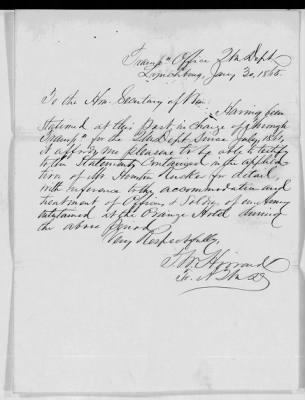 Transpn Office Q M Dept
Lynchburg, Jany 30, 1865.
To the Hon. Secretary of War:
Having been
stationed at this Post, in charge of through
Transpn for the Q M Dept, since July 1861,
it affords me pleasure to be able to testify
to the statements contained in the applica
tion of Mr Tucker for detail,
with reference to the accommodation and
treatment of Officers & Soldrs of our Army
entertained at the Orange Hotel during
the above period.
Very Respectfully,